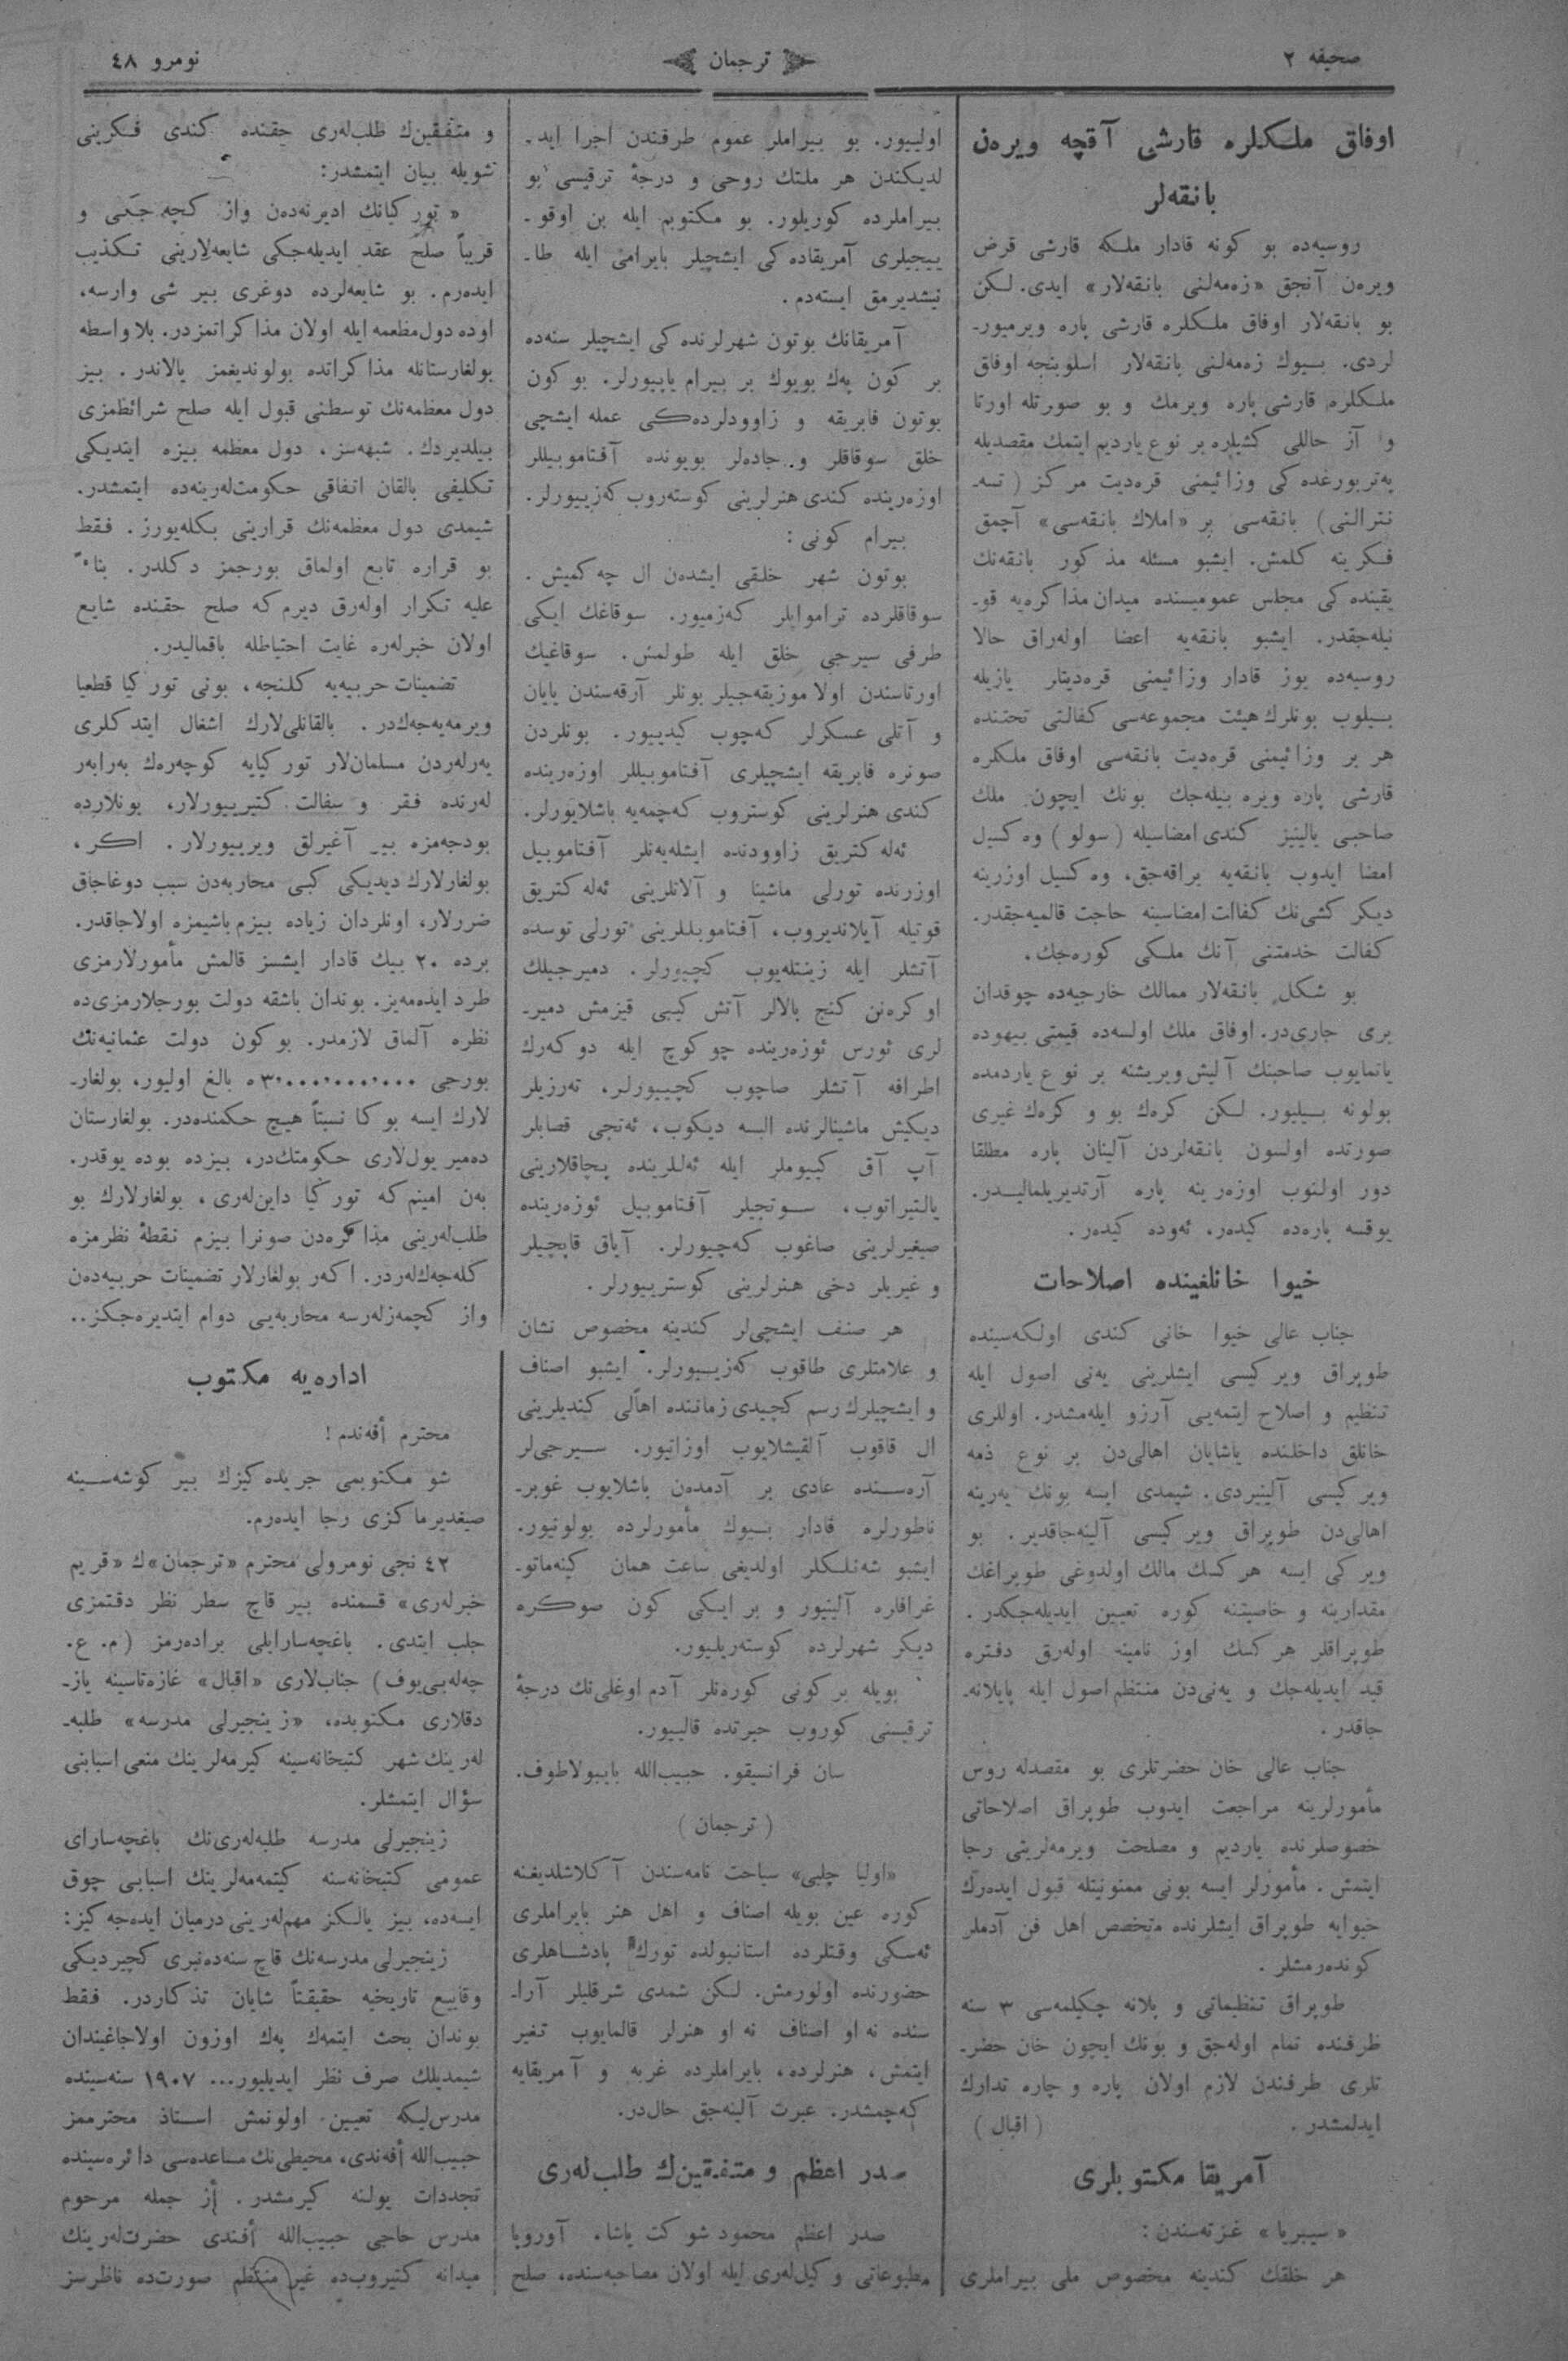 صحیفه ٢
ترجمان
نومرو ٤٨
اوفاق ملکلره قارشی آقچه ویره‌ن
بانقه‌لر
روسیه‌ده بو کونه قادار ملکه قارشی قرض
ویره‌ن آنجق «زه‌مه‌لنی بانقه‌لار» ایدی. لکن
بو بانقه‌لار اوفاق ملکلره قارشی پاره ویرمیور-
لردی. بیوك زه‌مه‌لنی بانقه‌لار اسلوبنجه اوفاق
ملکلره قارشی پاره ویرمك و بو صورتله اورتا
و آز حاللی کشیلره بر نوع یاردیم ایتمك مقصدیله
په‌تربورغده کی وزائیمنی قره‌دیت مرکز (تسه-
نترالنی) بانقه‌سی بر «املاك بانقه‌سی» آچمق
فکرینه کلمش. ایشبو مسئله مذکور بانقه‌نك
یقینده کی مجلس عمومیسنده میدان مذاکره‌یه قو-
نیله‌جقدر. ایشبو بانقه‌یه اعضا اوله‌راق حالا
روسیه‌ده یوز قادار وزائیمنی قره‌دیتلر یازیله
بیلوب بونلرك هیئت مجموعه‌سی کفالتی تحتنده
هر بر وزائیمنی قره‌دیت بانقه‌سی اوفاق ملکلره
قارشی پاره ویره بیله‌جك بونك ایچون ملك
صاحبی یالیڭز کندی امضاسیله (سولو) وه‌کسیل
امضا ایدوب بانقه‌یه براقه‌جق، وه‌کسیل اوزرینه
دیکر کشی‌نك کفالت امضاسینه حاجت قالمیه‌جقدر.
کفالت خدمتنی آنك ملکی کوره‌جك.
بو شکل بانقه‌لار ممالك خارجیه‌ده چوقدان
بری جاری‌در. اوفاق ملك اولسه‌ده قیمتی بیهوده
یاتمایوب صاحبنك آلیش ویریشنه بر نوع یاردمده
بولونه بیلیور. لکن کرك بو و کرك غیری
صورتده اولسون بانقه‌لردن آلینان پاره مطلقا
دور اولنوب اوزه‌رینه پاره آرتدیریلمالیدر.
یوقسه پاره‌ده کیده‌ر، ئه‌وده کیده‌ر.
خیوا خانلغینده اصلاحات
جناب عالی خیوا خانی کندی اولکه‌سینده
طوپراق ویرکیسی ایشلرینی یه‌نی اصول ایله
تنظیم و اصلاح ایتمه‌یی آرزو ایله‌مشدر. اوللری
خانلق داخلنده یاشایان اهالی‌دن بر نوع ذمه
ویرکیسی آلینیردی. شیمدی ایسه بونك یه‌رینه
اهالی‌دن طوپراق ویرکیسی آلینه‌جاقدیر. بو
ویرکی ایسه هر کسك مالك اولدوغی طوپراغك
مقدارینه و خاصیتنه کوره تعیین ایدیله‌جکدر.
طوپراقلر هر کسك اوز نامینه اوله‌رق دفتره
قید ایدیله‌جك و یه‌نی‌دن منتظم اصول ایله پایلانه-
جاقدر.
جناب عالی خان حضرتلری بو مقصدله روس
مأمورلرینه مراجعت ایدوب طوپراق اصلاحاتی
خصوصلرنده یاردیم و مصلحت ویرمه‌لرینی رجا
ایتمش. مأمورلر ایسه بونی ممنونیتله قبول ایده‌رك
خیوایه طوپراق ایشلرنده متخصص اهل فن آدملر
کونده‌رمشلر.
طوپراق تنظیماتی و پلانه چکیلمه‌سی ٣ سنه
ظرفنده تمام اوله‌جق و بونك ایچون خان حضر-
تلری طرفندن لازم اولان پاره و چاره تدارك
ایدلمشدر. (اقبال)
آمریقا مکتوبلری
«سیبریا» غزته‌سندن:
هر خلقك کندینه مخصوص ملی بیراملری
اولییور. بو بیراملر عموم طرفندن اجرا اید-
لدیکندن هر ملتك روحی و درجۀ ترقیسی بو
بیراملرده کوریلور. بو مکتوبم ایله بن اوقو-
ییجیلری آمریقاده کی ایشچیلر بایرامی ایله طا-
نیشدیرمق ایسته‌دم.
آمریقانك بوتون شهرلرنده کی ایشچیلر سنه‌ده
بر کون په‌ك بویوك بر بیرام یاپیورلر. بو کون
بوتون فابریقه و زاوودلرده‌کی عمله ایشچی
خلق سوقاقلر و جاده‌لر بویونده آفتاموبیللر
اوزه‌رینده کندی هنرلرینی کوسته‌روب که‌زییورلر.
بیرام کونی:
بوتون شهر خلقی ایشدن ال چه‌کمیش.
سوقاقلرده تراموایلر که‌زمیور. سوقاغك ایکی
طرفی سیرجی خلق ایله طولمش. سوقاغیك
اورتاسندن اولا موزیقه‌جیلر بونلر آرقه‌سندن یایان
و آتلی عسکرلر که‌چوب کیدییور. بونلردن
صونره فابریقه ایشچیلری آفتاموبیللر اوزه‌رینده
کندی هنرلرینی کوستروب که‌چمه‌یه باشلایورلر.
ئه‌له‌کتریق زاوودنده ایشله‌یه‌نلر آفتاموبیل
اوزرنده تورلی ماشینا و آلاتلرینی ئه‌له‌کتریق
قوتیله آیلاندیروب، آفتاموبیللرینی تورلی توسده
آتشلر ایله زینتله‌یوب کچیورلر. دمیرجیلك
اوکره‌نن کنج بالالر آتش کیبی قیزمش دمیر-
لری ئورس ئوزه‌رینده چوکوچ ایله دوکه‌رك
اطرافه آتشلر صاچوب کچییورلر، ته‌رزیلر
دیکیش ماشینالرنده البسه دیکوب، ئه‌تجی قصابلر
آپ آق کییوملر ایله ئه‌للرینده پچاقلارینی
یالتیراتوب، سوتجیلر آفتاموبیل ئوزه‌رینده
صیغیرلرینی صاغوب که‌چیورلر. آیاق قاپچیلر
و غیریلر دخی هنرلرینی کوستریورلر.
هر صنف ایشچی‌لر کندینه مخصوص نشان
و علامتلری طاقوب که‌زییورلر. ایشبو اصناف
و ایشچیلرك رسم کچیدی زماننده اهالی کندیلرینی
ال قاقوب آلقیشلایوب اوزاتیور. سیرجی‌لر
آره‌سنده عادی بر آدمدن باشلایوب غوبر-
ناطورلره قادار بیوك مأمورلرده بولونیور.
ایشبو شه‌نلکلر اولدیغی ساعت همان کینه‌ماتو-
غرافلره آلینیور و بر ایکی کون صوکره
دیکر شهرلرده کوسته‌ریلیور.
بویله بر کونی کوره‌نلر آدم اوغلی‌نك درجۀ
ترقیسنی کوروب حیرتده قالییور.
سان فرانسیقو. حبیب‌الله بایبولاطوف.
(ترجمان)
«اولیا چلبی» سیاحت نامه‌سندن آکلاشلدیغنه
کوره عین بویله اصناف و اهل هنر بایراملری
ئه‌سکی وقتلرده استانبولده تورك پادشاهلری
حضورنده اولورمش. لکن شمدی شرقلیلر آرا-
سنده نه او اصناف نه او هنرلر قالمایوب تغیر
ایتمش، هنرلرده، بایراملرده غربه و آمریقایه
که‌چمشدر. عبرت آلینه‌جق حال‌در.
صدر اعظم و متفقین‌ك طلب‌له‌ری
صدر اعظم محمود شوکت پاشا، آوروپا
مطبوعاتی وکیل‌له‌ری ایله اولان مصاحبه‌سنده، صلح
و متفقین‌ك طلب‌له‌ری حقنده کندی فکرینی
شویله بیان ایتمشدر:
«تورکیانك ادیرنه‌دن واز کچه‌جکی و
قریباً صلح عقد ایدیله‌جکی شایعه‌لارینی تکذیب
ایده‌رم. بو شایعه‌لرده دوغری بیر شی وارسه،
اوده دول معظمه ایله اولان مذاکراتمزدر. بلا واسطه
بولغارستانله مذاکراتده بولوندیغمز یالاندر. بیز
دول معظمه‌نك توسطنی قبول ایله صلح شرائطمزی
بیلدیردك. شبهه‌سز، دول معظمه بیزه ایتدیکی
تکلیفی بالقان اتفاقی حکومت‌له‌رینه‌ده ایتمشدر.
شیمدی دول معظمه‌نك قرارینی بکله‌یورز. فقط
بو قراره تابع اولماق بورجمز دکلدر. بناءً
علیه تکرار اوله‌رق دیرم که صلح حقنده شایع
اولان خبرله‌ره غایت احتیاطله باقمالیدر.
تضمینات حربیه‌یه کلنجه، بونی تورکیا قطعیا
ویرمه‌یه‌جه‌ك‌در. بالقانلی‌لارك اشغال ایتدکلری
یه‌رله‌ردن مسلمان‌لار تورکیایه کوچه‌ره‌ك به‌رابه‌ر
له‌رنده فقر و سفالت کتیرییورلار، بونلارده
بودجه‌مزه بیر آغیرلق ویرییورلار. اکر،
بولغارلارك دیدیکی کبی محاربه‌دن سبب دوغاجاق
ضررلار، اونلردان زیاده بیزم باشیمزه اولاجاقدر.
برده ٢٠ بیك قادار ایشسز قالمش مأمورلارمزی
طرد ایده‌مه‌یز. بوندان باشقه دولت بورجلارمزی‌ده
نظره آلماق لازمدر. بوکون دولت عثمانیه‌نك
بورجی ٣٠٠٠٠٠٠٠٠٠ه بالغ اولیور، بولغار-
لارك ایسه بوکا نسبتاً هیچ حکمنده‌در. بولغارستان
ده‌میر یول‌لاری حکومتك‌در، بیزده بوده یوقدر.
به‌ن امینم که تورکیا داین‌له‌ری، بولغارلارك بو
طلب‌له‌رینی مذاکره‌دن صونرا بیزم نقطۀ نظرمزه
کله‌جه‌ك‌له‌ردر. اکه‌ر بولغارلار تضمینات حربیه‌دن
واز کچمه‌زله‌رسه محاربه‌یی دوام ایتدیره‌جکز..
اداره‌یه مکتوب
محترم أفه‌ندم!
شو مکتوبمی جریده‌کیزك بیر کوشه‌سینه
صیغدیرماکزی رجا ایده‌رم.
٤٢ نجی نومرولی محترم «ترجمان»ك «قریم
خبرله‌ری» قسمنده بیر قاچ سطر نظر دقتمزی
جلب ایتدی. باغچه‌سارایلی براده‌رمز (م. ع.
چه‌له‌بی‌یوف) جناب‌لاری «اقبال» غازه‌تاسینه یاز-
دقلاری مکتوبده، «زینجیرلی مدرسه» طلبه-
له‌رینك شهر کتبخانه‌سینه کیرمه‌لرینك منعی اسبابنی
سؤال ایتمشلر.
زینجیرلی مدرسه طلبه‌له‌ری‌نك باغچه‌سارای
عمومی کتبخانه‌سنه کیتمه‌مه‌لرینك اسبابی چوق
ایسه‌ده، بیز یالکز مهم‌له‌رینی درمیان ایده‌جه‌کیز:
زینجیرلی مدرسه‌نك قاچ سنه‌ده‌نبری کچیردیکی
وقاییع تاریخیه حقیقتاً شایان تذکاردر. فقط
بوندان بحث ایتمه‌ك په‌ك اوزون اولاجاغیندان
شیمدیلك صرف نظر ایدیلیور... ١٩٠٧ سنه‌سینده
مدرس‌لیکه تعیین اولونمش استاذ محترممز
حبیب‌الله أفه‌ندی، محیطی‌نك مساعده‌سی دائره‌سینده
تجددات یولنه کیرمشدر. أز جمله مرحوم
مدرس حاجی حبیب‌الله أفندی حضرت‌له‌رینك
میدانه کتیروب‌ده غیر منتظم صورت‌ده ناظرسز